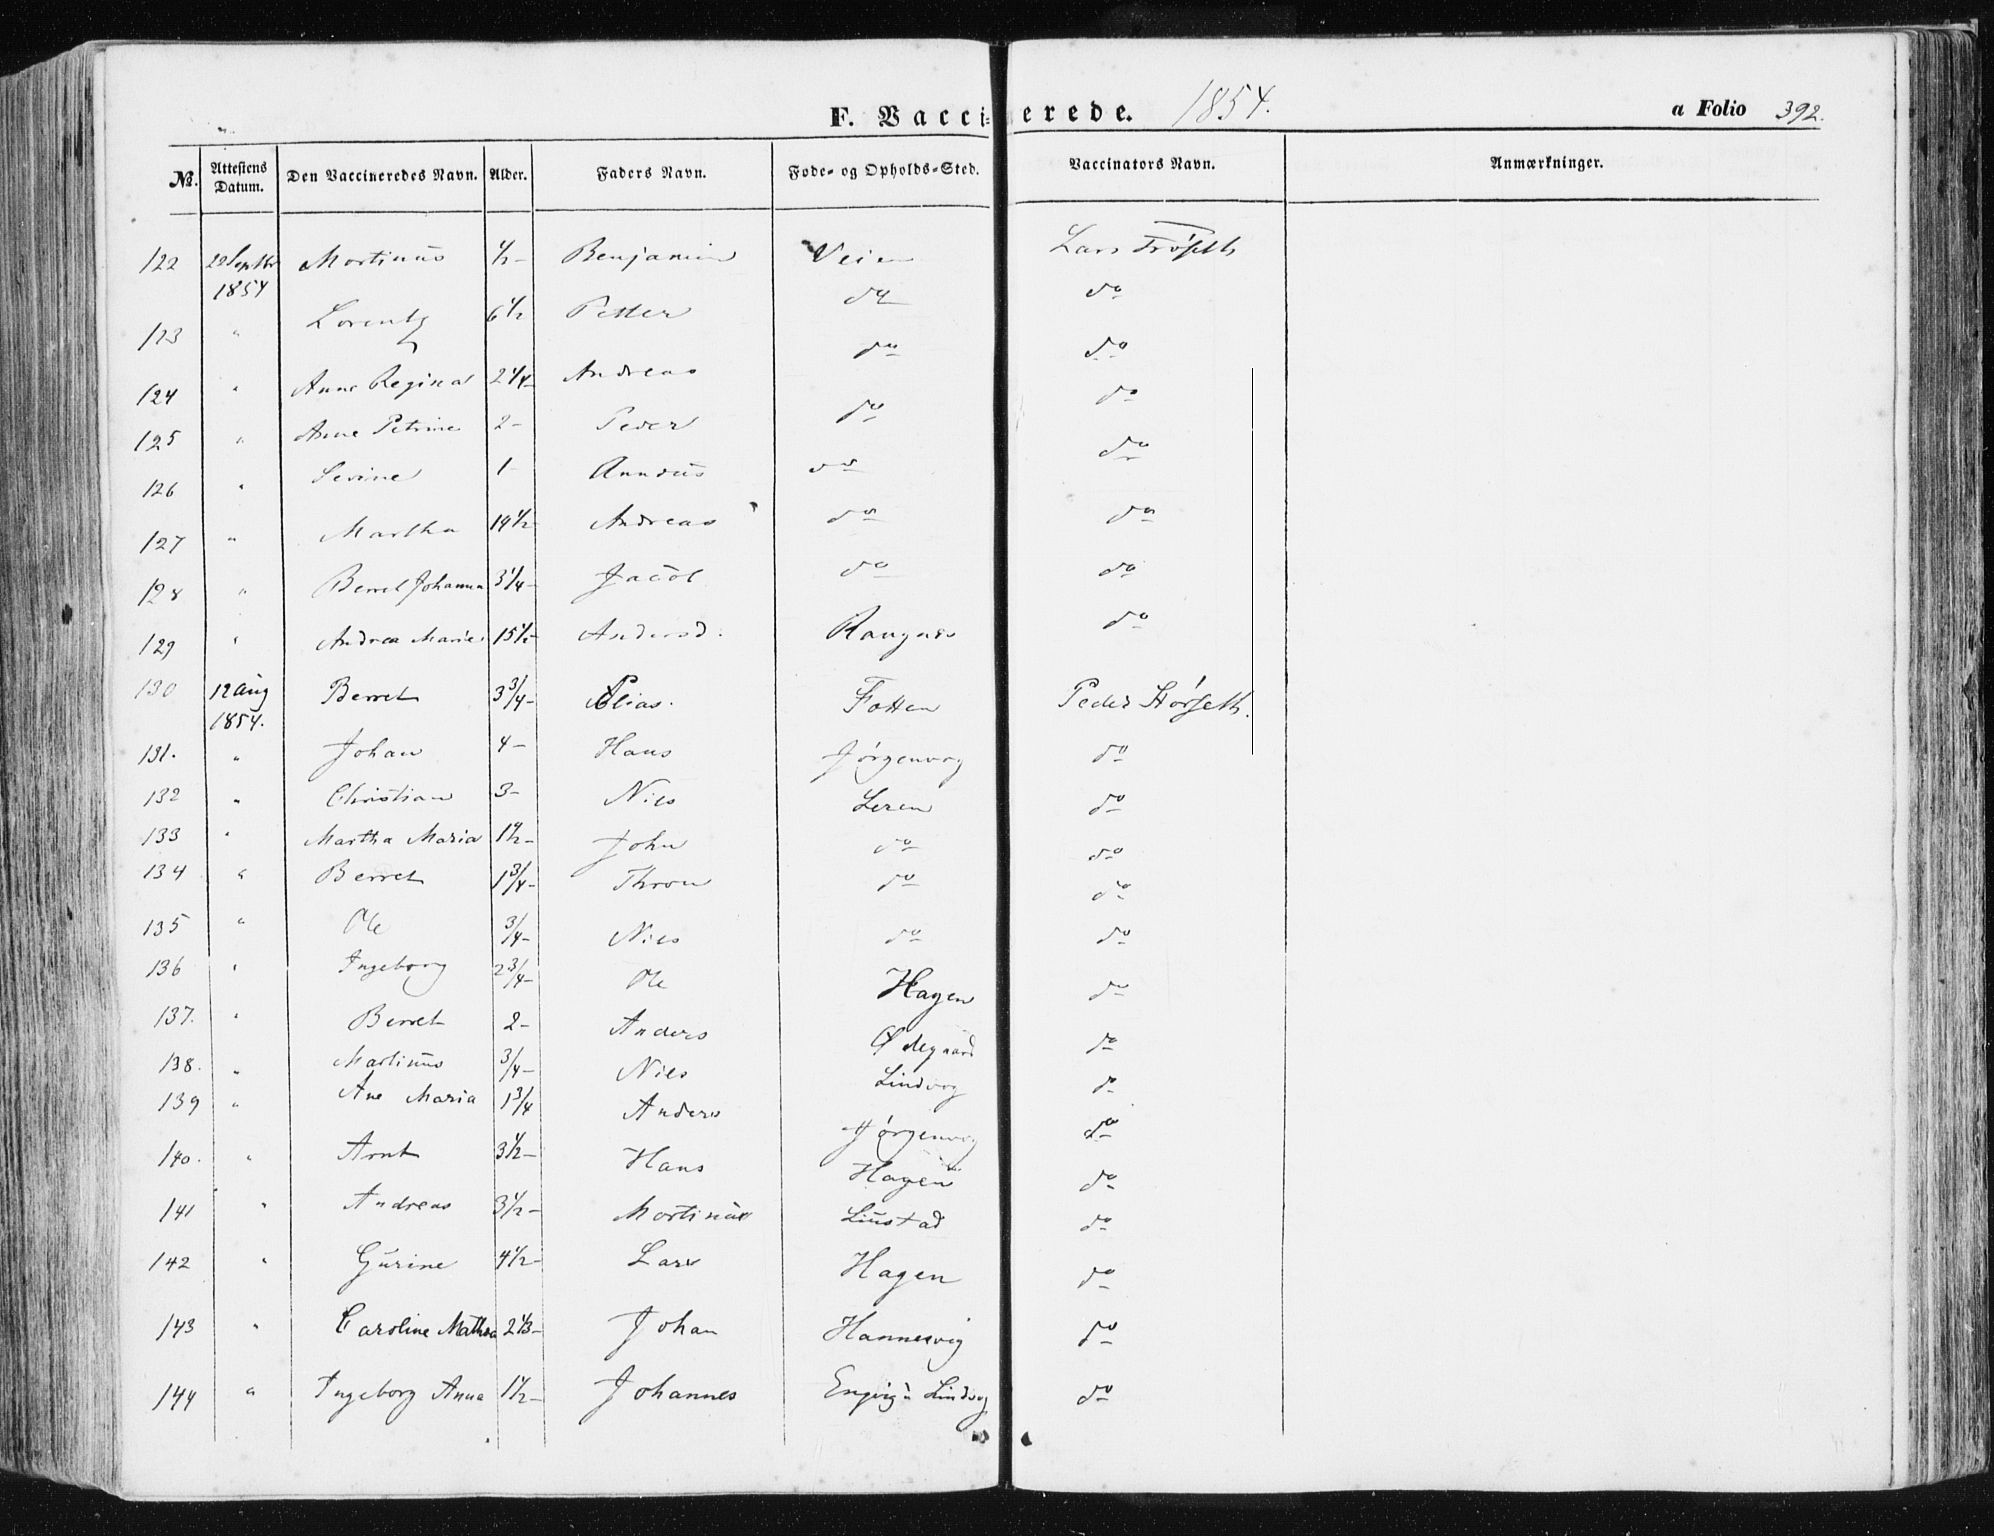 F. Vaccinerede. 1854. a Folio 392.
No. Attestens Datum. Den Vaccineredes Navn. Alder. Faders Navn. Føde- og Opholds-Sted. Vaccinators Navn. Anmærkninger.
122 22 Septbr 1854 Martinus 1/2 - Benjamin Veien Lars
123 " Lorentz 6 1/2 Petter do do
124 " Anne Regina 2 1/4 - Andreas do do
125 " Anne Petrine 2 - Peder do do
126 " Sevine 1 - do do
127 " Martha 19 1/2 - Andreas do do
128 " Berret Johanna 3 1/4 - Jacob do do
129 " Andrea Marie 15 1/2 - Andersd. Rangnes do
130 12 Aug 1854. Berret 3 3/4 - Elias. Fotten Peder Størseth.
131. " Johan 4 - Hans Jørgenvog do
132 " Christian 3 - Nils Leren do
133 " Martha Maria 1 1/2 - John do do
134 " Berret 1 3/4 - Thron do do
135 " Ole 3/4 - Nils do do
136 " Ingeborg 2 3/4 - Ole Hagen do
137. " Berret 2 - Anders Ødegaard do
138. " Martinus 3/4 - Nils Lindvog do
139 " Ane Maria 1 3/4 Anders Jørgenvog do
140. " Arnt 3 1/2 - Hans Hagen do
141 " Andreas 3 1/2 - Mortinus Liustad do
142 " Gurine 4 1/2 - Lars Hagen do
143 " Caroline Mathea 2 1/3 - Johan Hannesvig do
144 " Ingeborg Anna 1 1/2 - Johannes Engvig Lindvog do